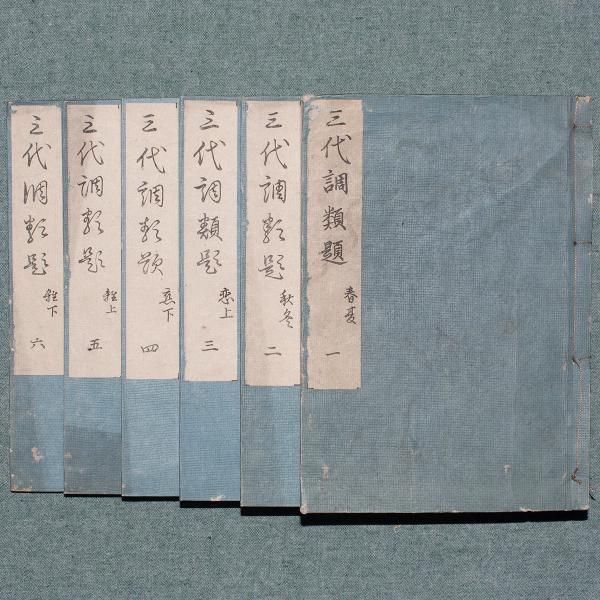 三代調類題
春夏
一
三代調類題
秋冬
二
三代調類題
恋上
三
三代調類題
恋下
四
三代調類題
雑上
五
三代調類題
雑下
六